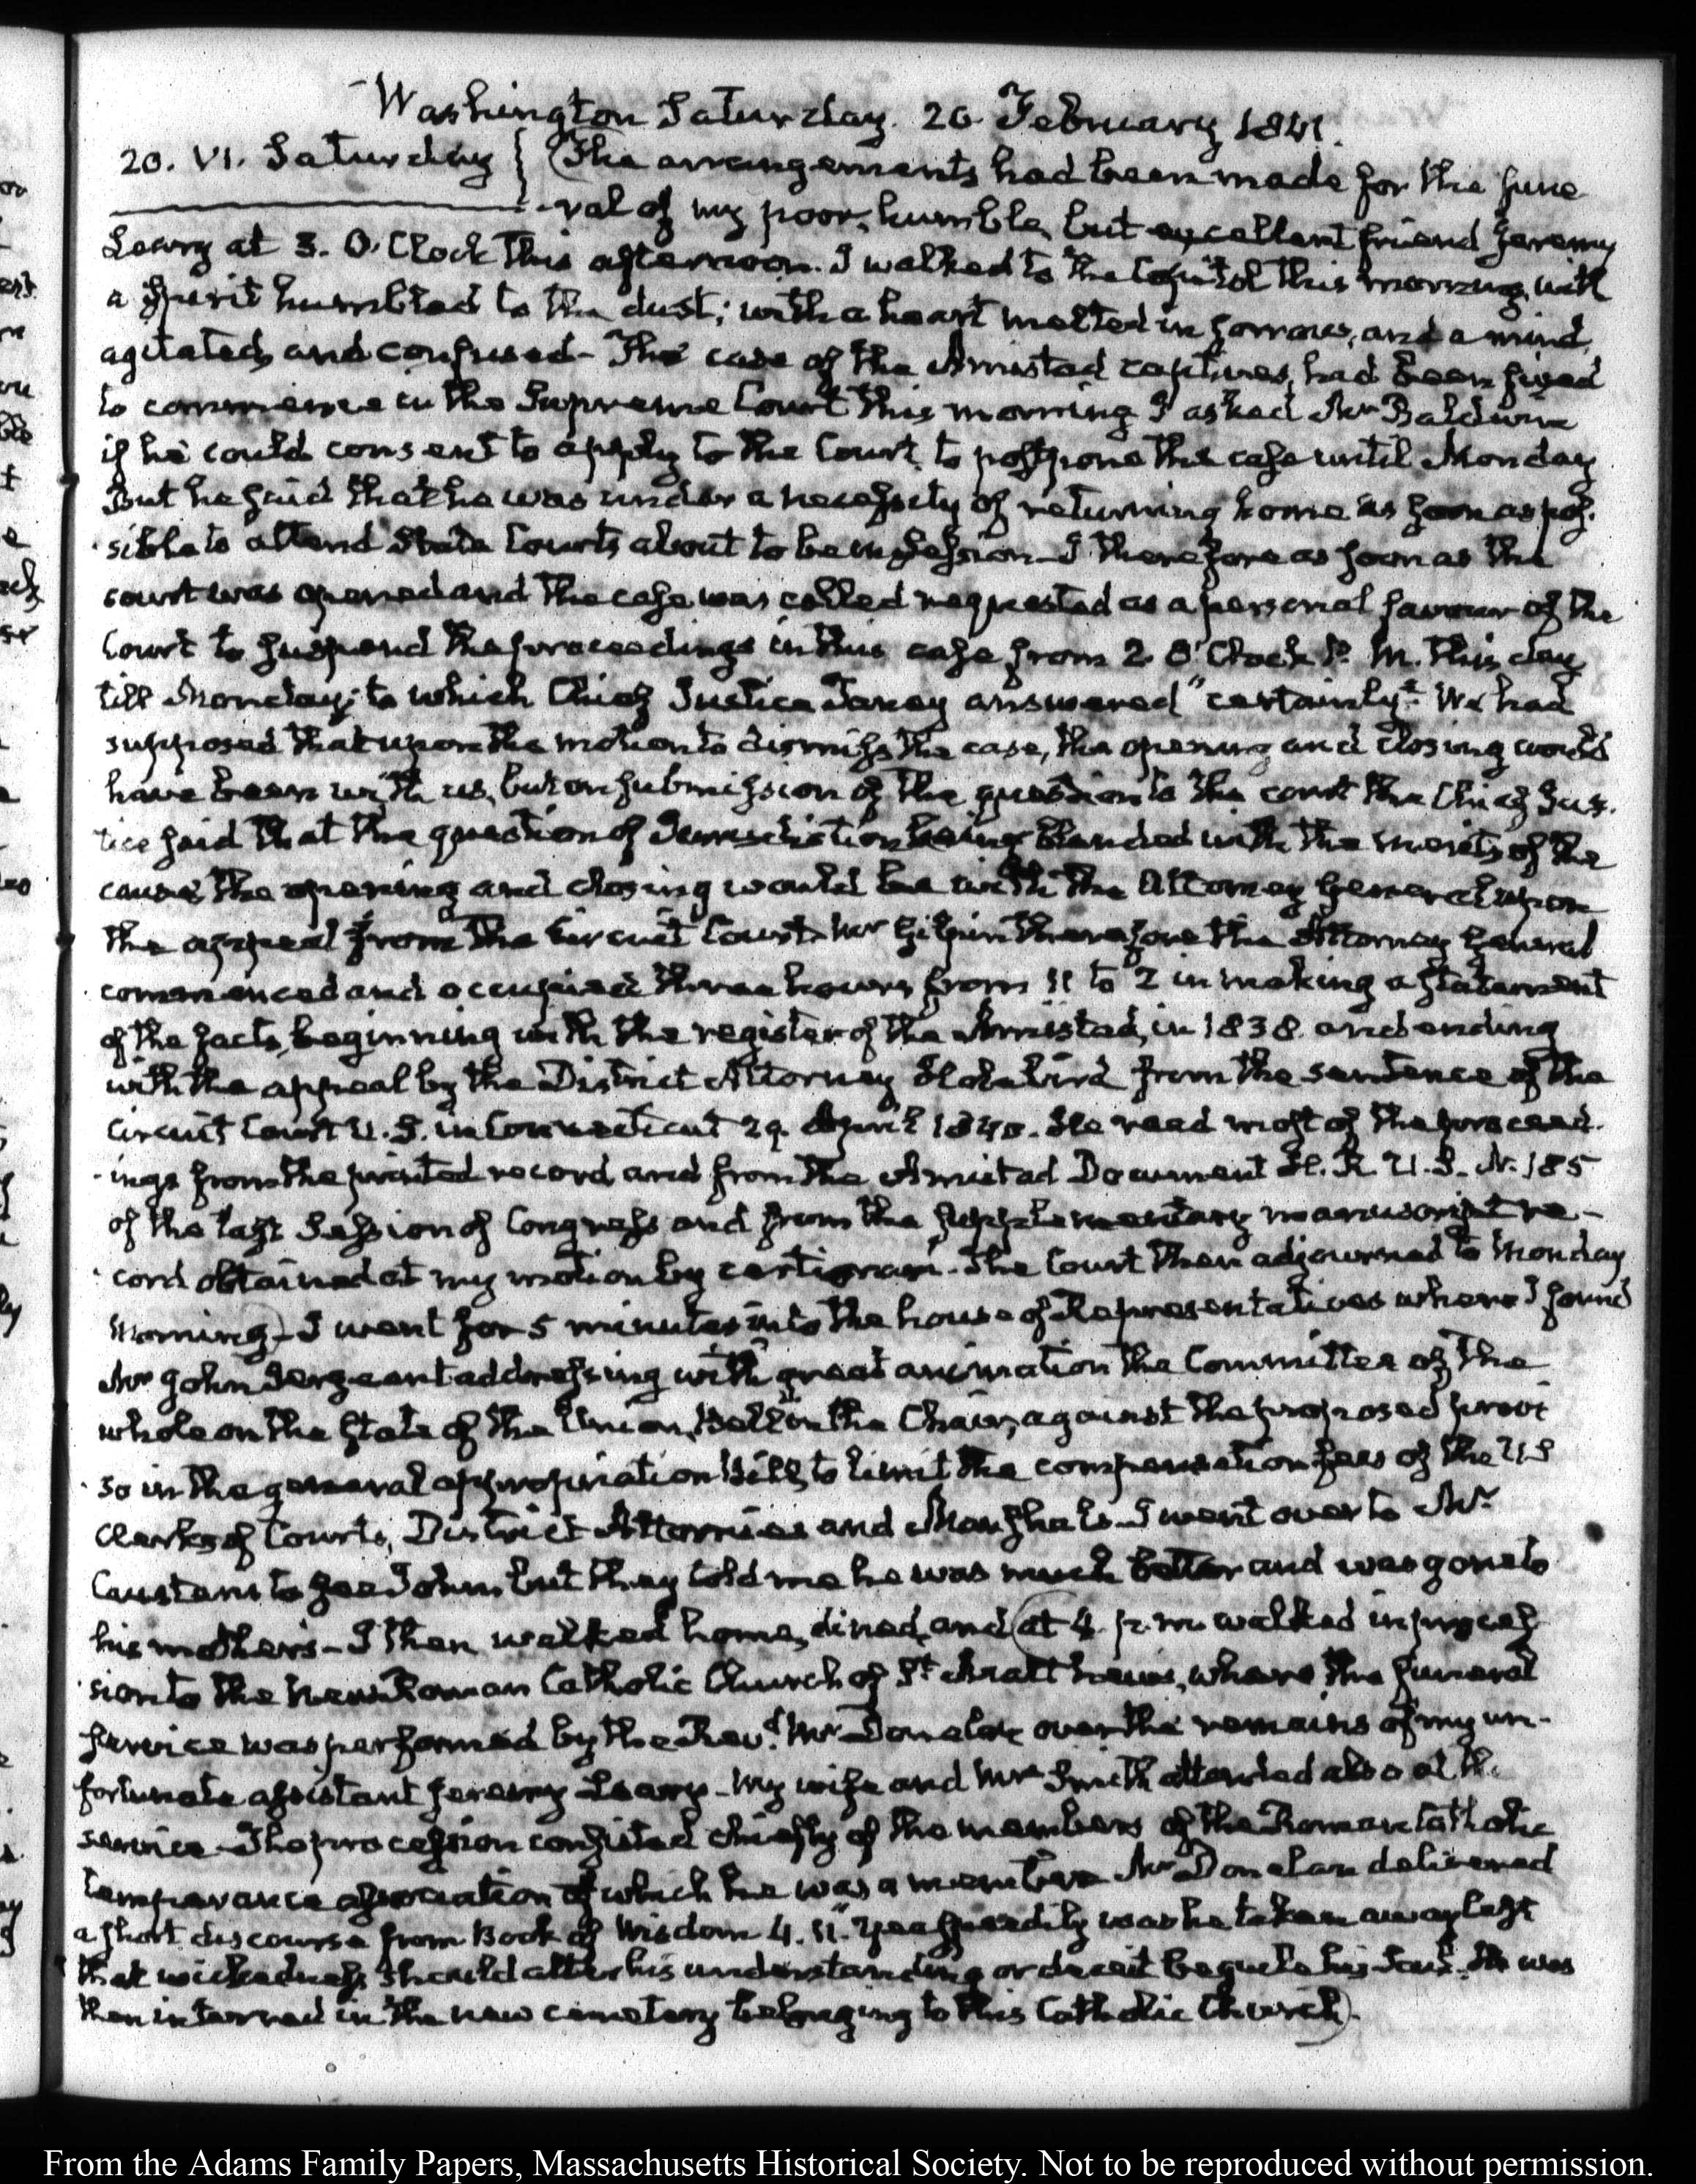 Washington Saturday. 20. February 1841.
20. VI. Saturday { (The arrangements had been made for the fune
-ral of my poor, humble, but excellent friend Jeremy
Leary at 3. O'Clock this afternoon. I walked to the Capitol this morning, with
a spirit humbled to the dust; with a heart melted in sorrow, and a mind
agitated, and confused - The case of the Amistad captives, had been fixed
to commence in the Supreme Court this morning I asked Mr Baldwin
if he could consent to apply to the Court, to postpone the case until Monday
But he said that he was under a necessity of returning home as soon as pos-
sible to attend State Courts about to be in Session - I therefore as soon as the
court was opened and the case was called requested as a personal favour of the
Court to suspend the proceedings in this case from 2 O'Clock P. M. this day
till Monday; to which Chief Justice Taney answered "certainly" We had
supposed that upon the motion to dismiss the case, the opening and closing would
have been with us, but on submission of the question to the court the Chief Jus-
tice said that the question of Jurisdiction being blended with the merits of the
cause, the opening and closing would be with the Attorney General upon
the appeal from the Circuit Court. Mr Gilpin therefore the Attorney General
commenced and occupied three hours from 11 to 2 in making a statement
of the facts, beginning with the register of the Amistad, in 1838. and ending
with the appeal by the District Attorney Holabird from the sentence of the
Circuit Court U.S. in Connecticut 29. April 1840. He read most of the proceed-
-ings from the printed record and from the Amistad Document H. R. U.S. N. 185
of the last Session of Congress and from the supplementary manuscript re-
-cord obtained at my motion by certiorari. The Court then adjourned to Monday
Morning) - I went for 5 minutes into the house of Representatives where I found
Mr John Sergeant addressing with great animation the Committee of the
whole on the state of the Union, Bell in the Chair, against the proposed provi
-so in the general appropriation bill, to limit the compensation fees of the U S
Clerks of Courts, District Attornies and Marshals - I went over to Mr
Caustens to see John but they told me he was much better and was gone to
his mother's - I then walked home, dined, and (at 4. p. m. walked in proces-
-sion to the new Roman Catholic Church of St Matthews, where the funeral
service was performed by the Revd. Mr Donelan over the remains of my un-
fortunate assistant Jeremy Leary - My wife and Mrs Smith attended also at the
service - The procession consisted chiefly of the members of the Roman Catholic
temperance association of which he was a member Mr Donelan delivered
a short discourse from Book of Wisdom 4. 11. "Yea speedily was he taken away lest
that wickedness should alter his understanding or deceit beguile his soul. He was
then interred in the new cemetery belonging to this Catholic Church).
From the Adams Family Papers, Massachusetts Historical Society. Not to be reproduced without permission.